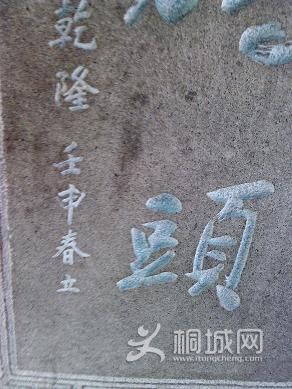 頭
乾隆壬申春立
桐城网
www.itongcheng.com